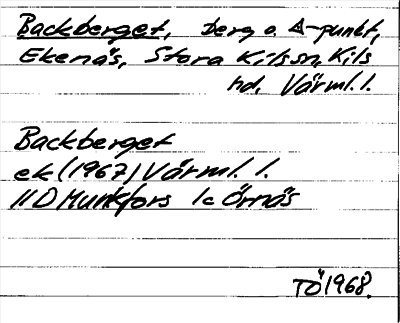 Backberget, berg o. Δ-punkt,
Ekenäs, Stora Kils sn, Kils
hd, Värml. l.
Backberget
ek (1967) Värml. l.
11D Munkfors 1c Örnäs
TÖ 1968.